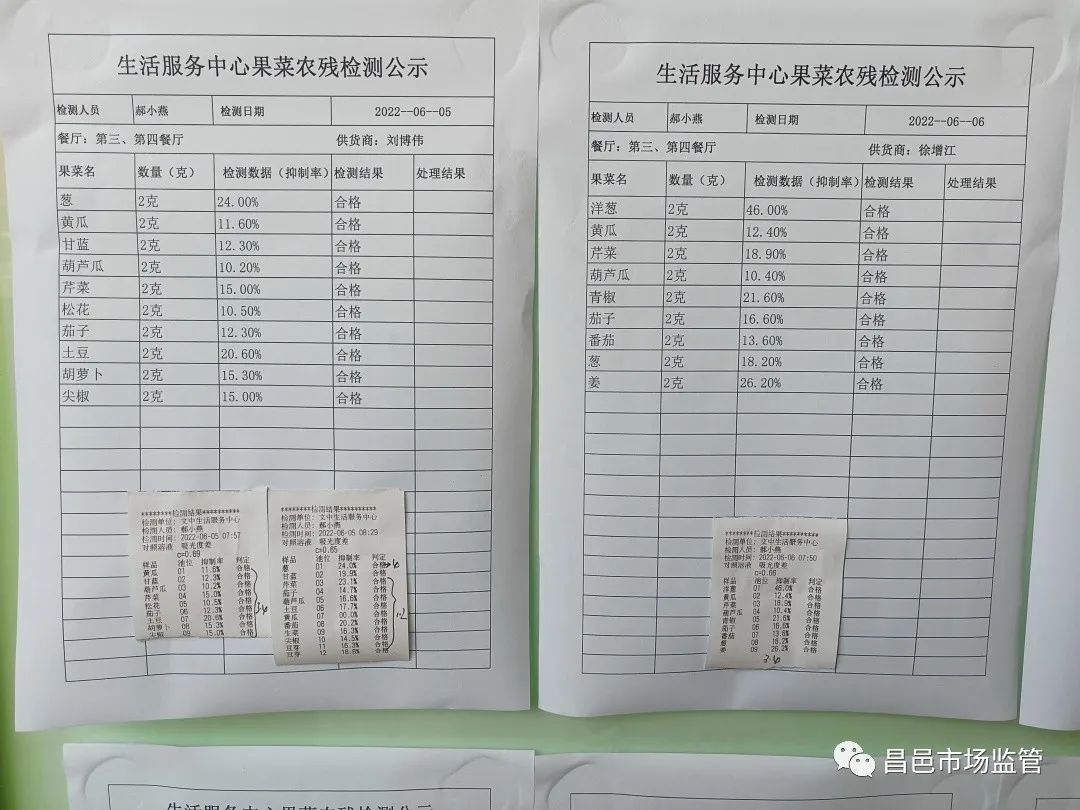 生活服务中心果菜农残检测公示
检测人员 郝小燕 检测日期 2022--06--05
餐厅：第三、第四餐厅 供货商：刘博伟
果菜名 数量（克） 检测数据（抑制率） 检测结果 处理结果
葱 2克 24.00% 合格
黄瓜 2克 11.60% 合格
甘蓝 2克 12.30% 合格
葫芦瓜 2克 10.20% 合格
芹菜 2克 15.00% 合格
松花 2克 10.50% 合格
茄子 2克 12.30% 合格
土豆 2克 20.60% 合格
胡萝卜 2克 15.30% 合格
尖椒 2克 15.00% 合格
********检测结果**********
检测单位：文中生活服务中心
检测人员：郝小燕
检测时间：2022-06-05 07:57
对照溶液 吸光度差
c=0.69
样品 池位 抑制率 判定
黄瓜 01 11.6% 合格
甘蓝 02 12.3% 合格
葫芦瓜 03 10.2% 合格
芹菜 04 15.0% 合格
松花 05 10.5% 合格
茄子 06 12.3% 合格
土豆 07 20.6% 合格
胡萝卜 08 15.3% 合格
尖椒 09 15.0% 合格
3.4
********检测结果**********
检测单位：文中生活服务中心
检测人员：郝小燕
检测时间：2022-06-05 08:29
对照溶液 吸光度差
c=0.65
样品 池位 抑制率 判定
葱 01 24.0% 合格
甘蓝 02 19.9% 合格
芹菜 03 23.1% 合格
茄子 04 14.7% 合格
葫芦瓜 05 16.6% 合格
土豆 06 17.7% 合格
黄瓜 07 00.0% 合格
番茄 08 20.2% 合格
生菜 09 16.3% 合格
尖椒 10 14.5% 合格
豆芽 11 16.3% 合格
豆芽 12 18.8% 合格
生活服务中心果菜农残检测公示
检测人员 郝小燕 检测日期 2022--06--06
餐厅：第三、第四餐厅 供货商：徐增江
果菜名 数量（克） 检测数据（抑制率） 检测结果 处理结果
洋葱 2克 46.00% 合格
黄瓜 2克 12.40% 合格
芹菜 2克 18.90% 合格
葫芦瓜 2克 10.40% 合格
青椒 2克 21.60% 合格
茄子 2克 16.60% 合格
番茄 2克 13.60% 合格
葱 2克 18.20% 合格
姜 2克 26.20% 合格
********检测结果**********
检测单位：文中生活服务中心
检测人员：郝小燕
检测时间：2022-06-06 07:50
对照溶液 吸光度差
c=0.66
样品 池位 抑制率 判定
洋葱 01 46.0% 合格
黄瓜 02 12.4% 合格
芹菜 03 18.9% 合格
葫芦瓜 04 10.4% 合格
青椒 05 21.6% 合格
茄子 06 16.6% 合格
番茄 07 13.6% 合格
葱 08 18.2% 合格
姜 09 26.2% 合格
3.4
生活服务中心果菜农残检测公示
昌邑市场监管